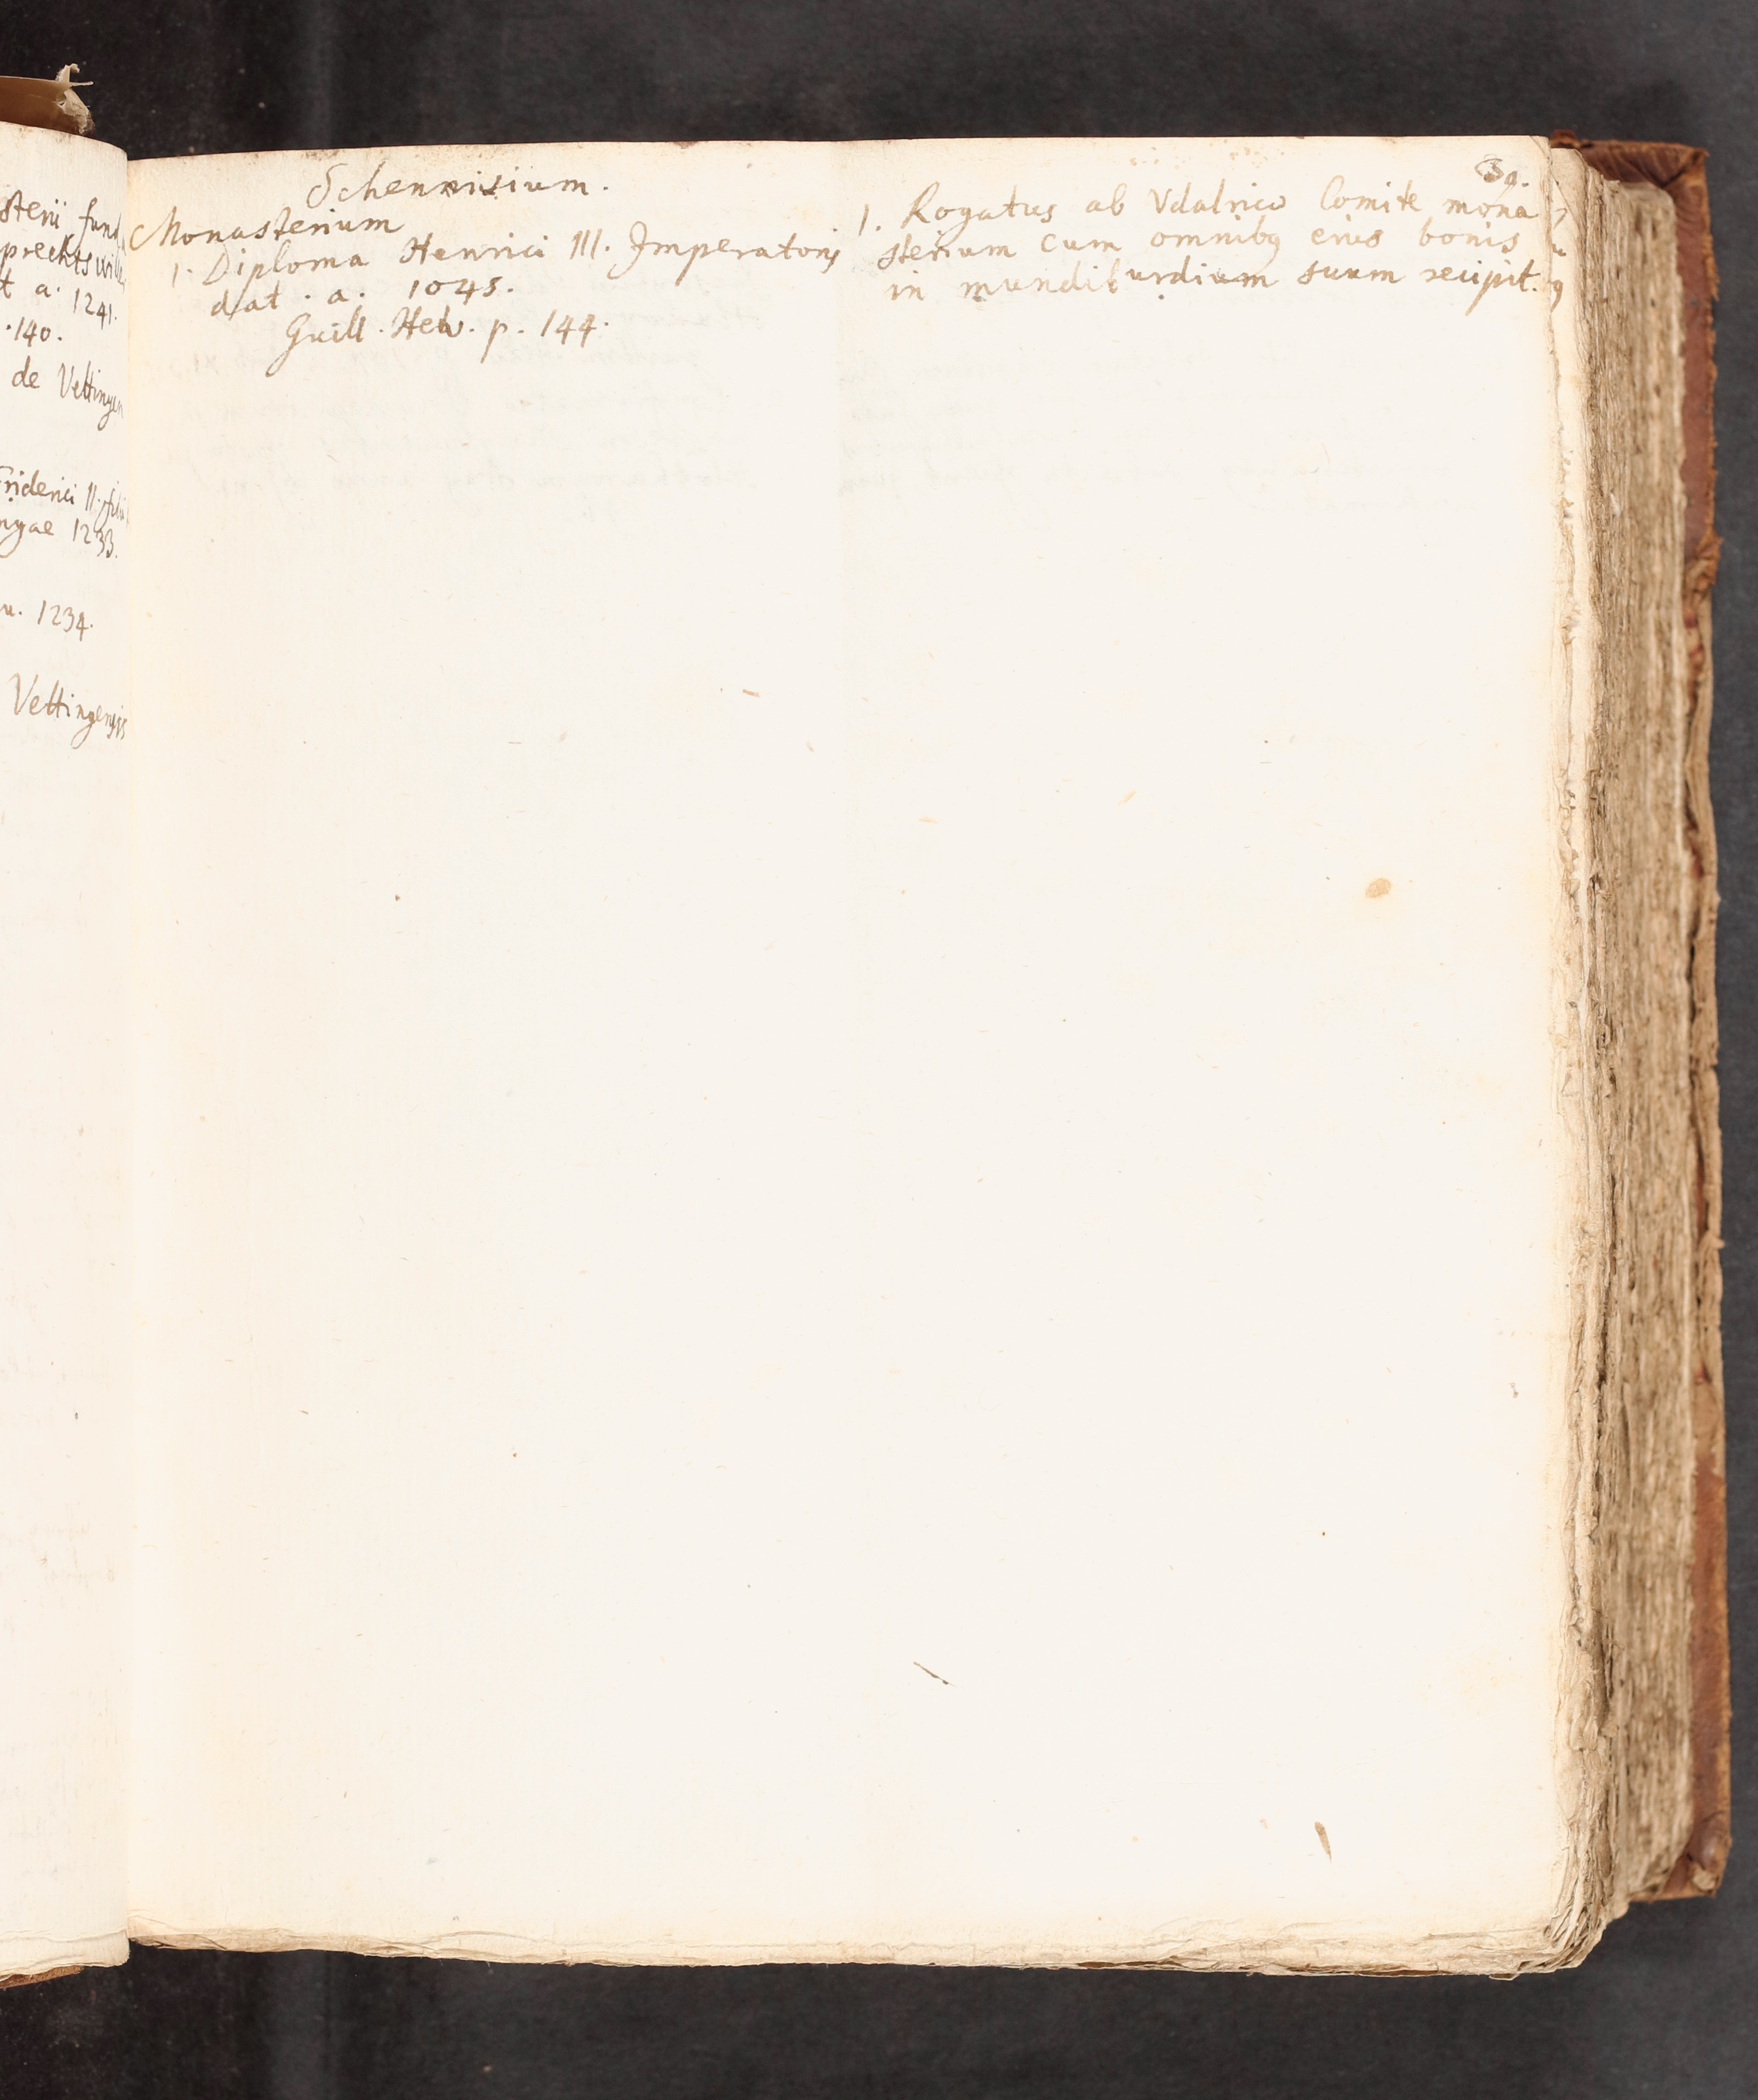 sterii fund
prechtswile
t a. 1241.
.140.
de Vettingen
Friderici II. fili
ngae 1233.
u. 1234.
Vettingensis
Schennisium.
Monasterium
1. Diploma Henrici III. Imperatoris
dat. a. 1045.
Guill. Helv. p. 144.
30.
1. Rogatus ab Vdalrico Comite mona
sterium cum omnibꝯ eius bonis
in mundiburdium suum recipit.